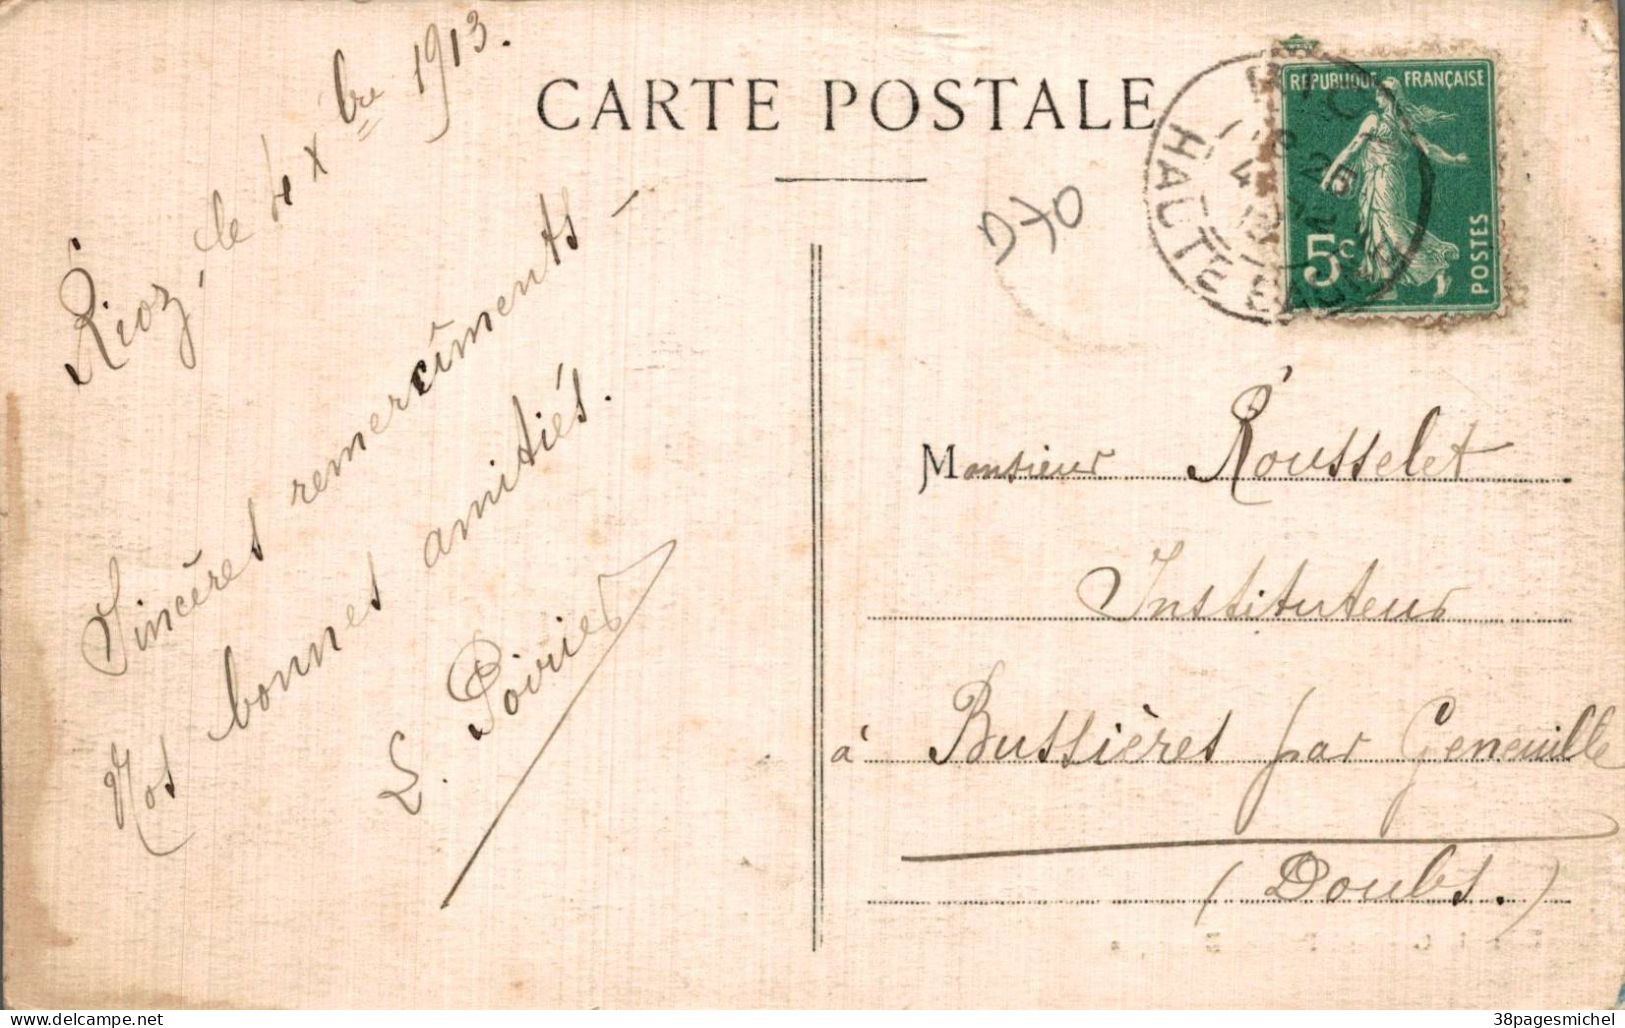 CARTE POSTALE
REPUBLIQUE FRANÇAISE
5c
POSTES
HAUTE
D70
Rioz, le 4 Xbre 1913.
Sincères remerciements –
Nos bonnes amitiés.
L. Poirier
Monsieur Rousselet
Instituteur
à Bussières par Geneuille
(Doubs.)
www.delcampe.net
38pagesmichel